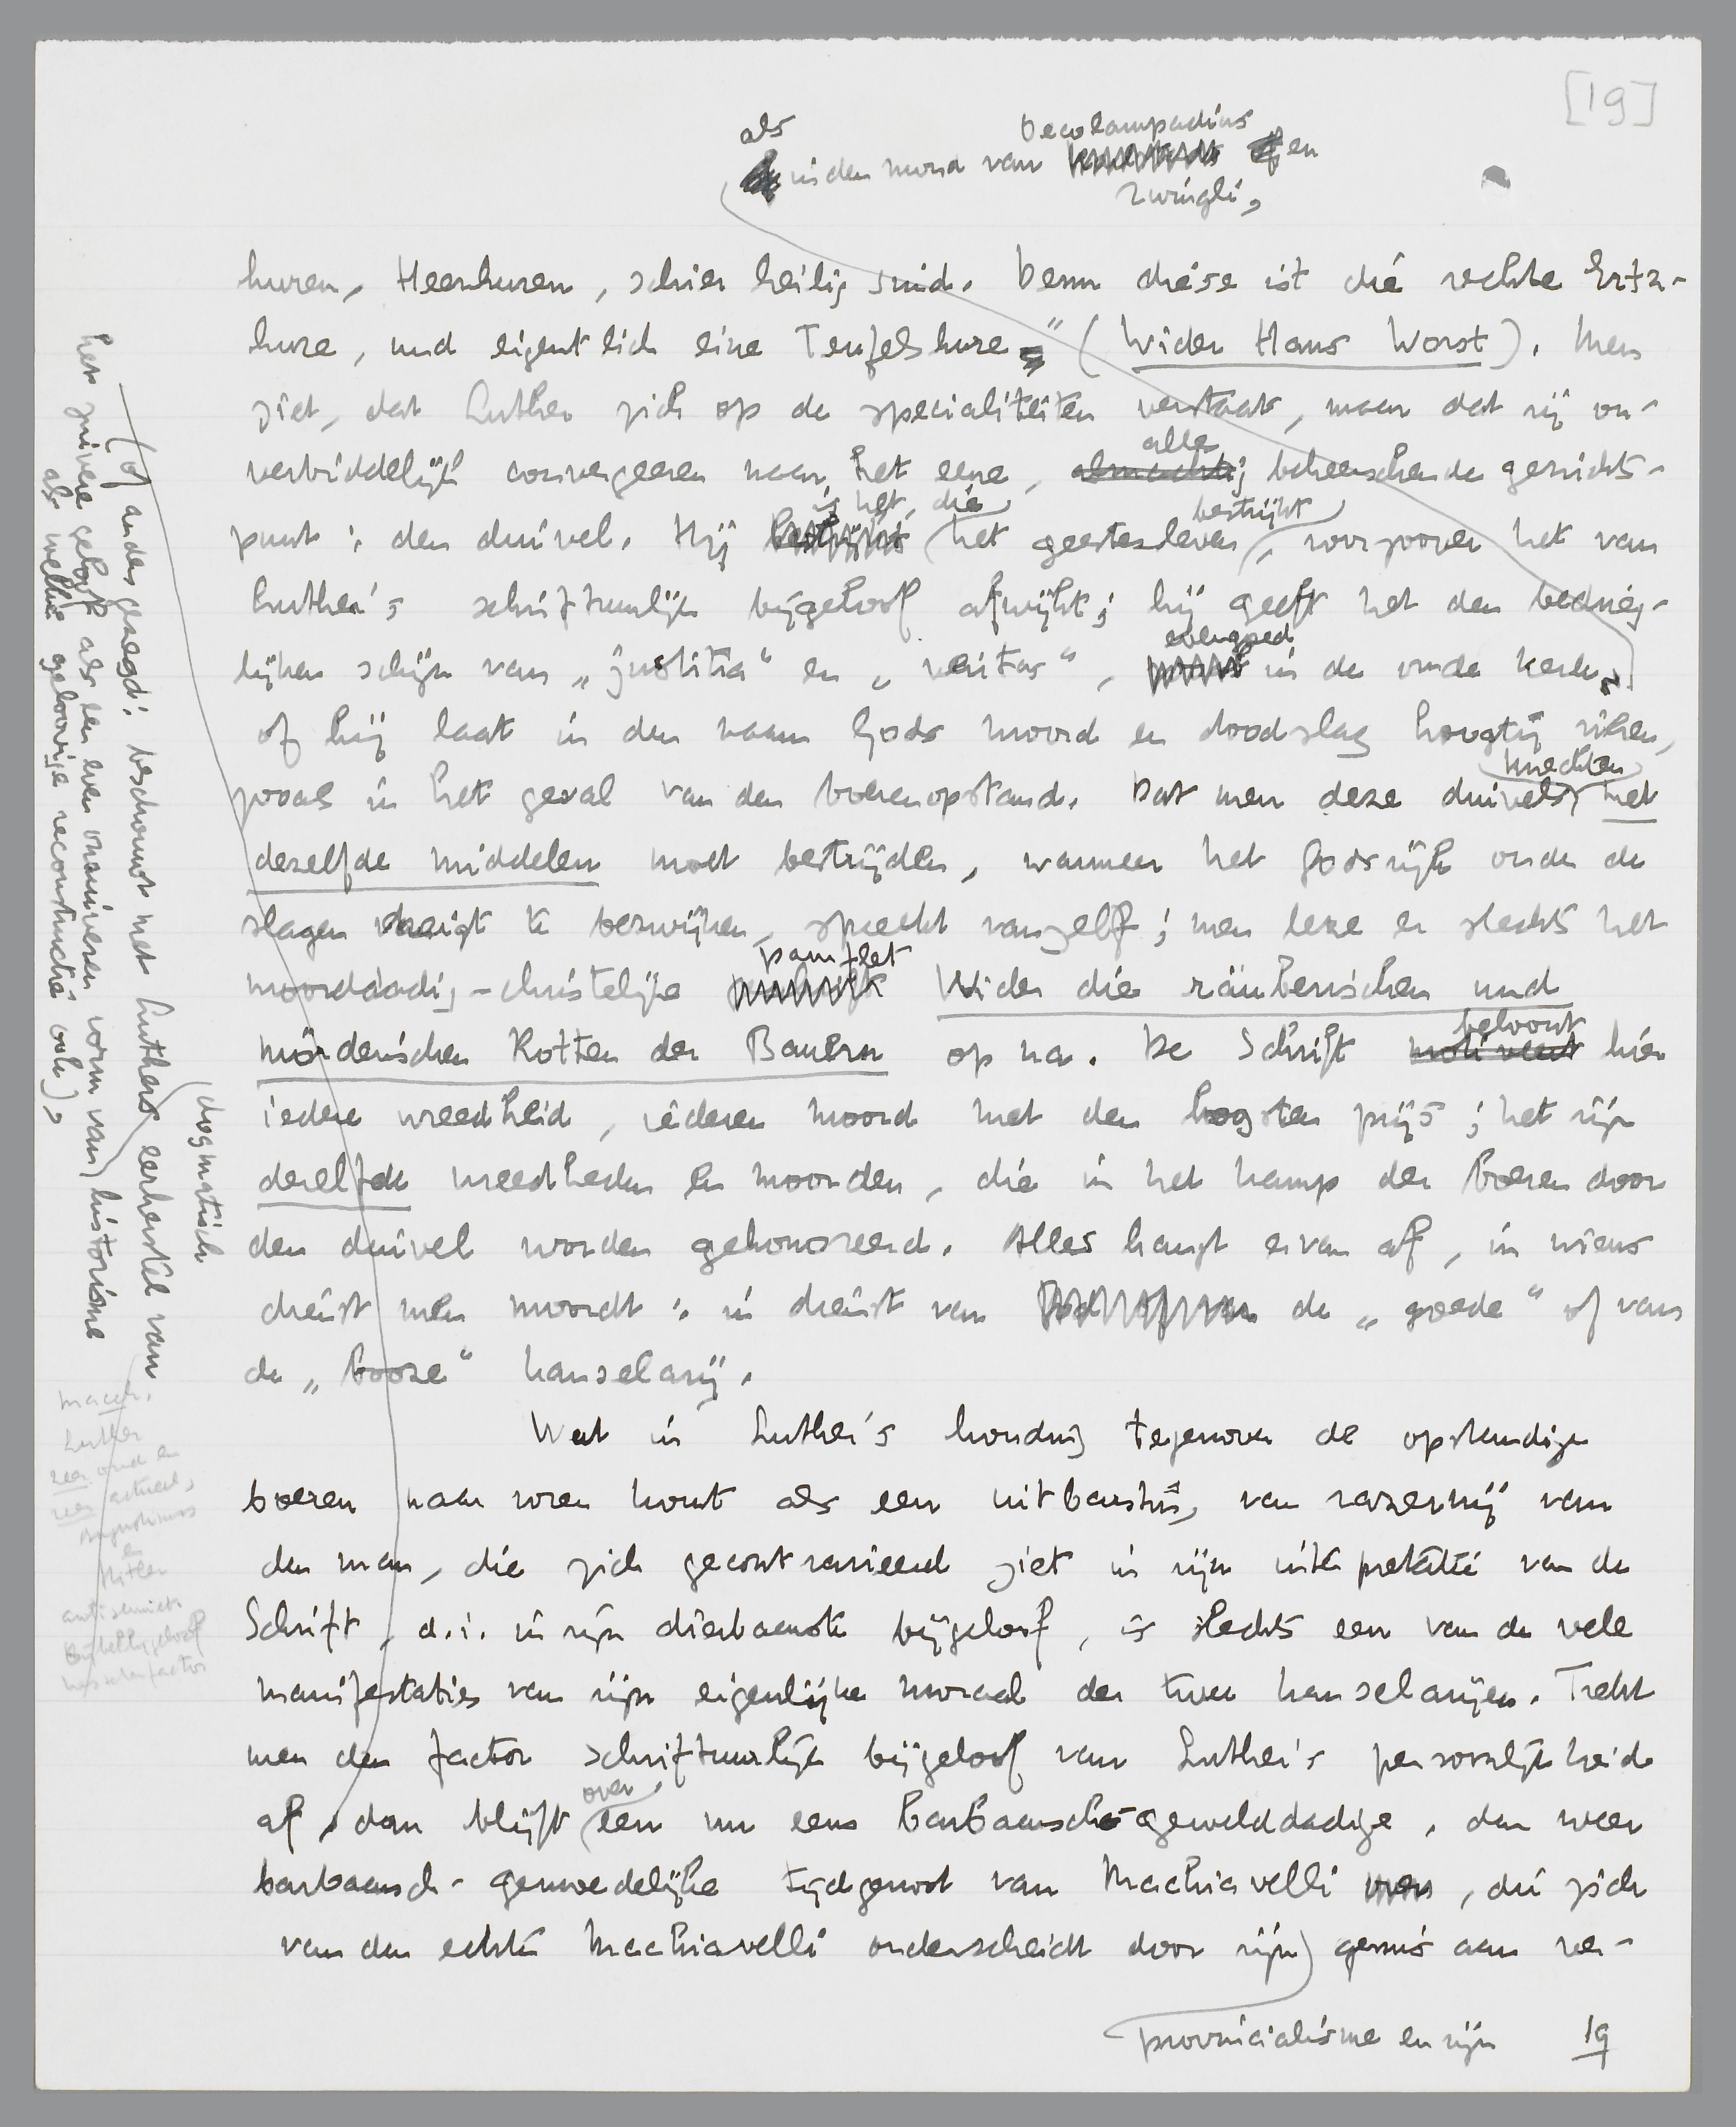 [19]
als
in den mond van Oecolampadius en
Zwingli,
huren, Heerhuren, schier heilig sind. Denn diese ist die rechte Ertz-
hure, und eigentlich eine Teufelshure" (Wider Hans Worst). Men
ziet, dat Luther zich op de specialiteiten verstaat, maar dat zij on-
verbiddelijk convergeeren naar het eene, alles
beheerschende gezichts-
punt: den duivel. Hij is het, die het geestesleven bestrijkt, voorzoover het van
Luther's schriftuurlijk bijgeloof afwijkt; hij geeft het den bedrieg-
lijken schijn van „justitia" en „veritas", evengoed in de oude kerk,
of hij laat in den naam Gods moord en doodslag hoogtij vieren,
zooals in het geval van den boerenopstand. Dat men deze duivelsknechten met
dezelfde middelen moet bestrijden, wanneer het Godsrijk onder de
slagen dreigt te bezwijken, spreekt vanzelf; men leze er slechts het
moorddadig-christelijke pamflet Wider die räuberischen und
mörderischen Rotten der Bauern op na. De Schrift beloont hier
iedere wreedheid, iederen moord met den hoogsten prijs; het zijn
dezelfde wreedheden en moorden, die in het kamp der boeren door
den duivel worden gehonoreerd. Alles hangt ervan af, in wiens
dienst men moordt: in dienst van de „goede" of van
de „booze" kanselarij.
Wat in Luther's houding tegenover de opstandige
boeren naar voren komt als een uitbarsting van razernij van
den man, die zich gecontrarieerd ziet in zijn interpretatie van de
Schrift, d.i. in zijn dierbaarste bijgeloof, is slechts een van de vele
manifestaties van zijn eigenlijke moraal der twee kanselarijen. Trekt
men den factor schriftuurlijk bijgeloof van Luther's persoonlijkheid
af, dan blijft over een nu eens barbaarsch-gewelddadige, dan weer
barbaarsch-gemoedelijke tijdgenoot van Machiavelli, die zich
van den echten Machiavelli onderscheidt door zijn gemis aan ver-
provincialisme en zijn
19
(of anders gezegd: beschouwt met Luthers eerherstel van
het zuivere geloof als een even onzuiveren vorm van (dogmatisch) historisme
als welke geloovige reconstructie ook),
Mach.
Luther
zeer oud en
zeer actueel,
Augustinus
en
Hitler
antisemiet
Bijbelbijgeloof